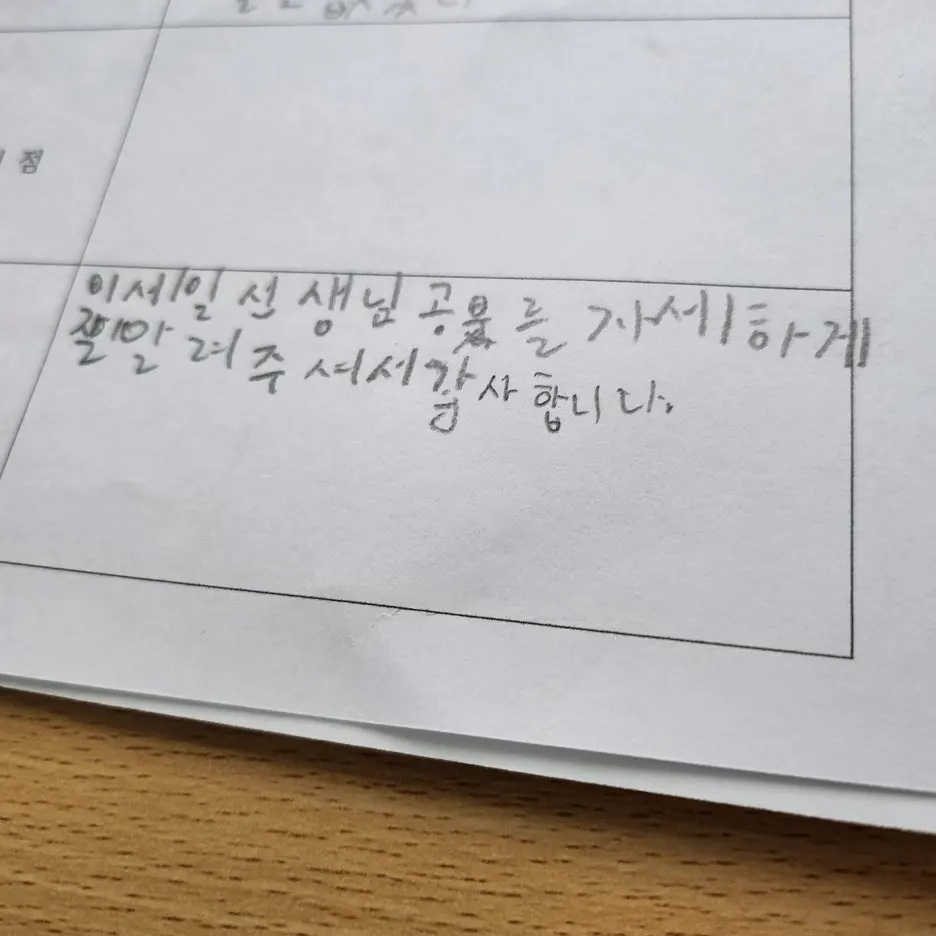 점
이세일 선생님 공부를 자세하게
잘 알려주셔서 감사합니다.